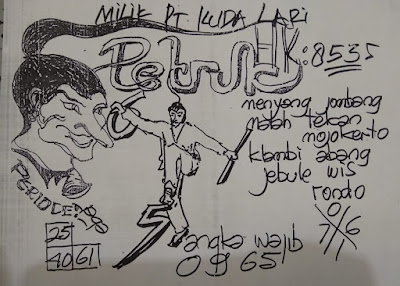 MILIK PT KUDA LARI
Petruk
HK: 8535
menyang jombang
malah tekan
mojokerto
klambi abang
jebule wis
rondo
0
7/6
1
PERIODE:
5
25
40 61
angka wajib
65